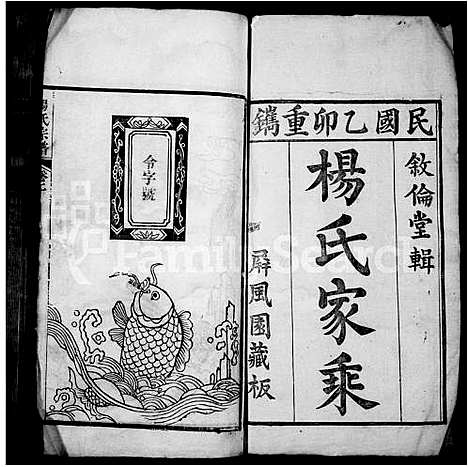 民國乙卯重鐫
敘倫堂輯
楊氏家乘
屏風園藏板
令字號
楊氏宗譜
FamilySearch